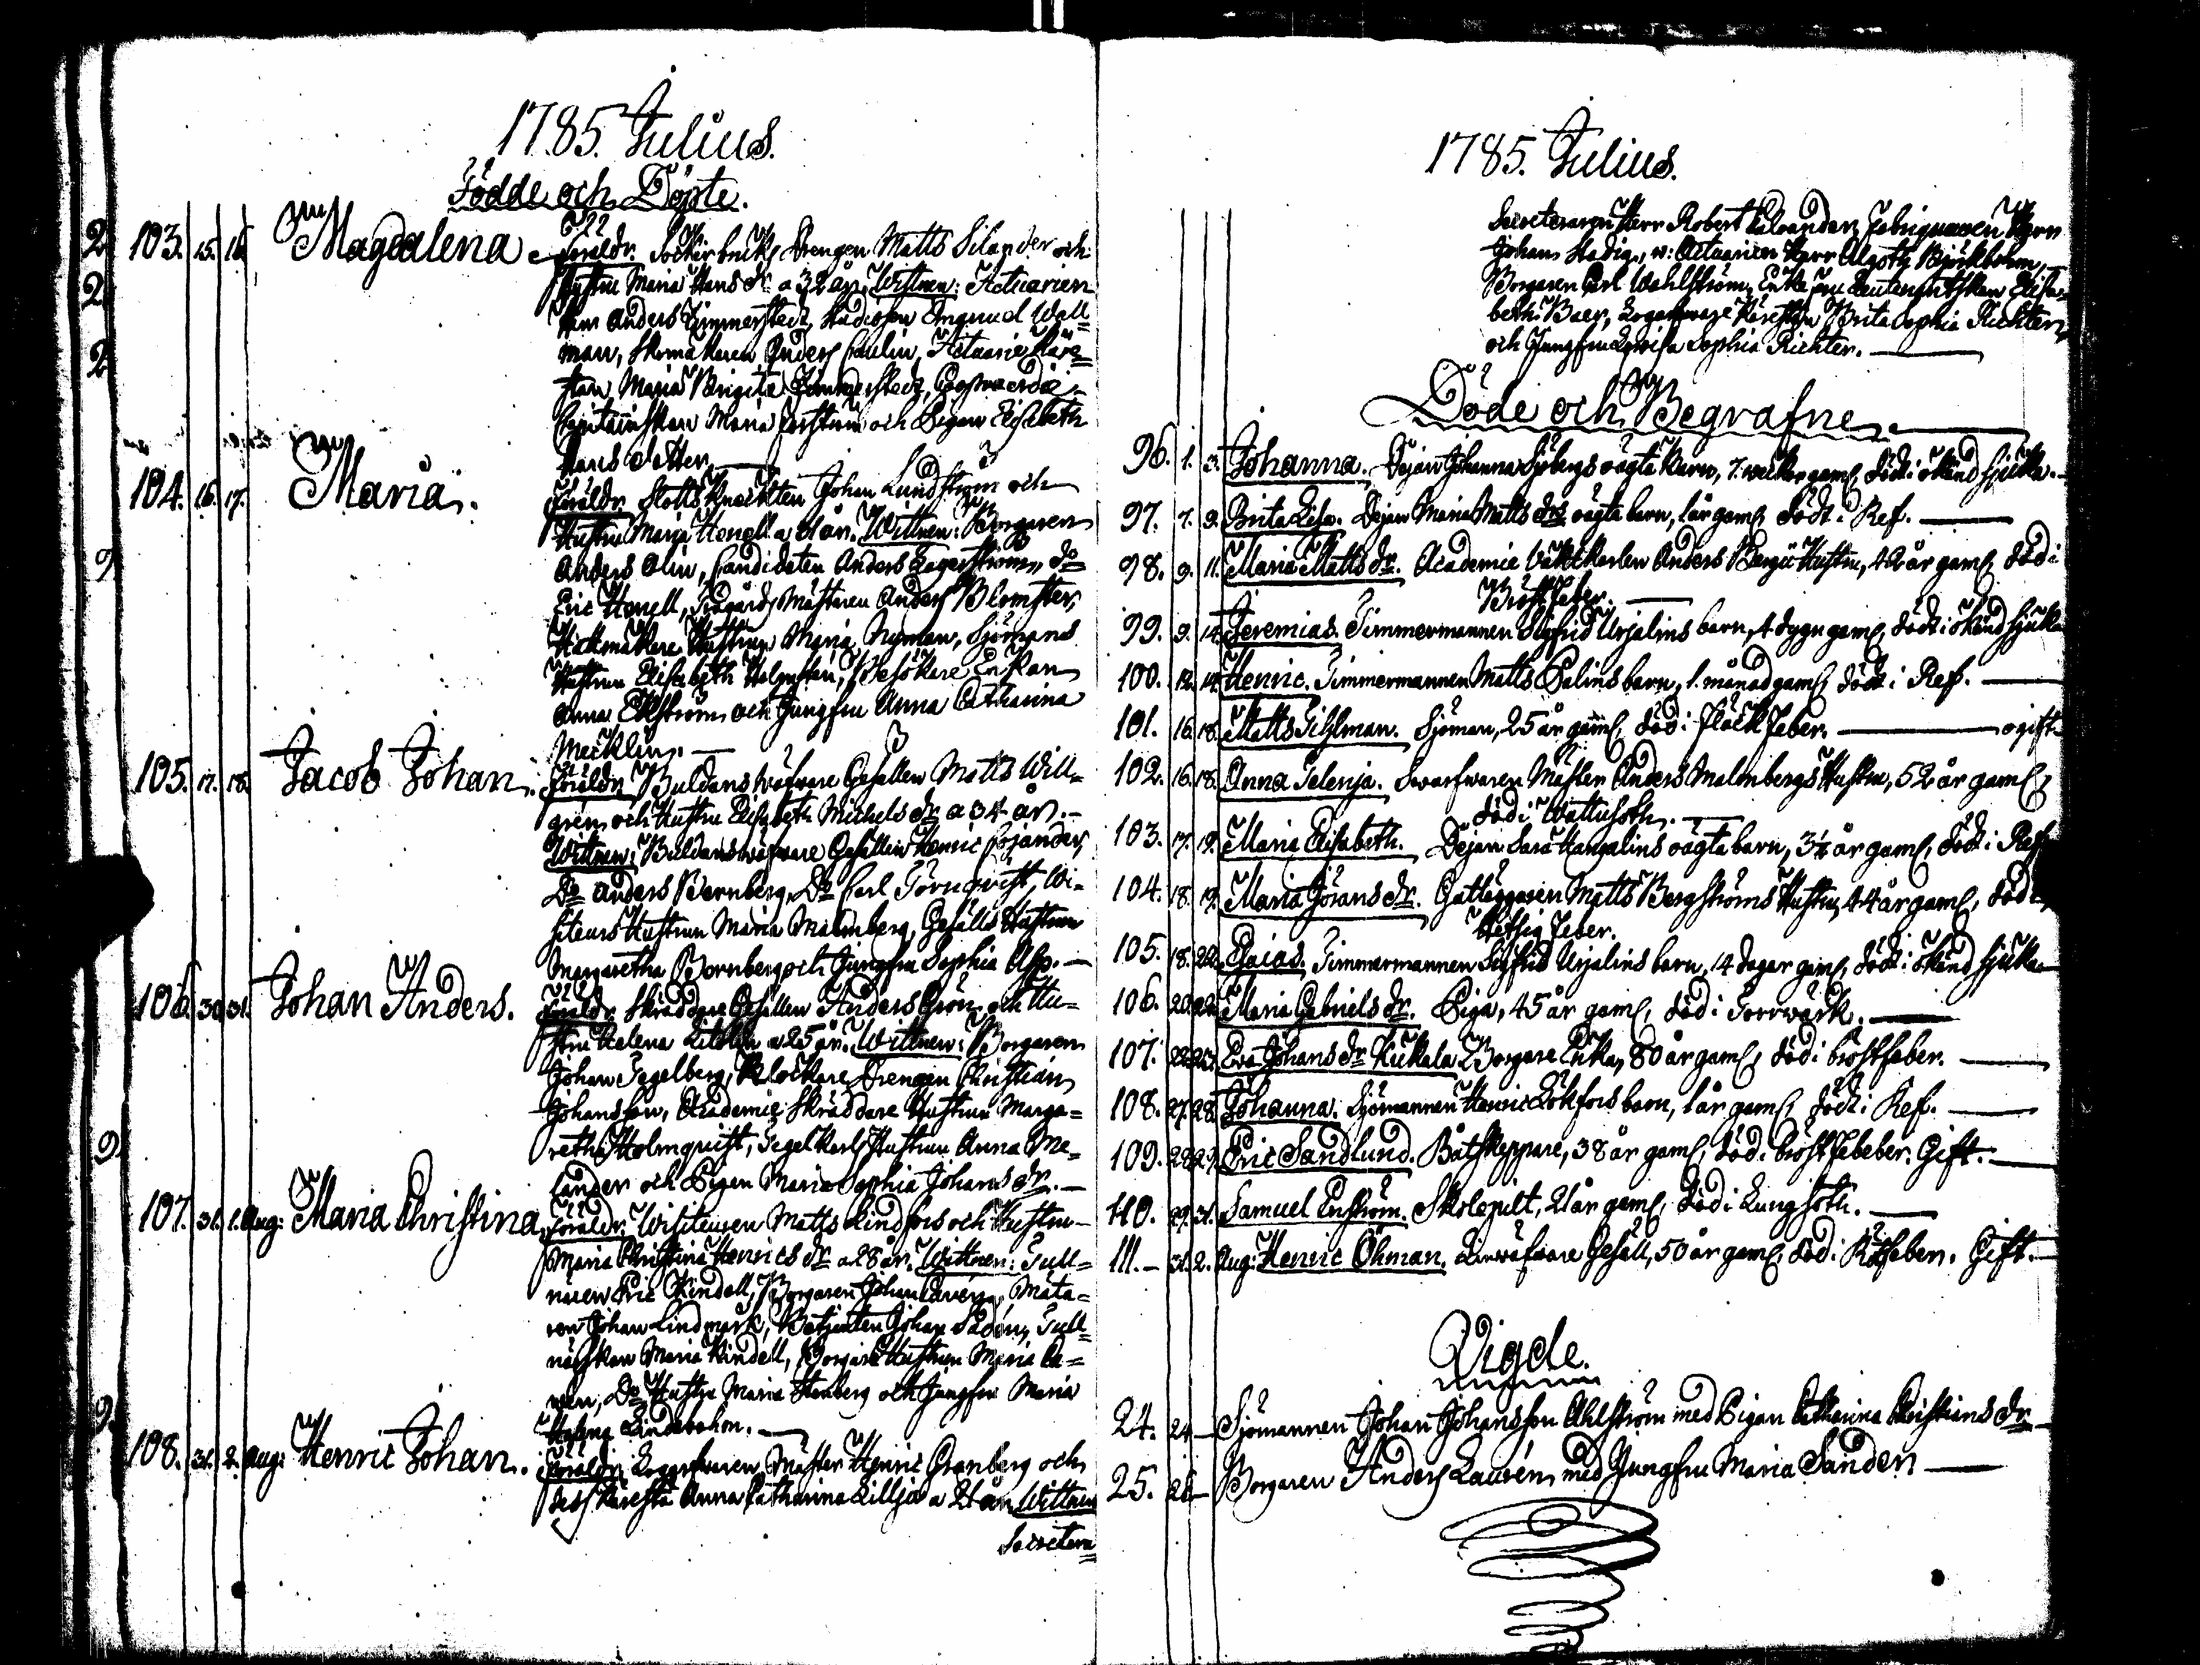 1785. Julius.
Födde och Döpte.
103. 15. 16. Magdalena. Föräldr. Sockerbruks Drengen Matts Silander och
Hustru Maria Hansdr. a 32 år. Wittnen: Actuarien
Herr Anders Timmerstedt, Studiosen Emanuel Wall=
man, Skomakaren Anders Paulin, Actuarie Käre=
stan Maria Brigita Timmerstedt,
Capitainskan Maria och Pigan Elisabeth
Hans dotter.
104. 16. 17. Maria. Föräldr. Slotts Knechten Johan Lundström och
Hustru Maria Honell a år. Wittnen: Borgaren
Anders Alin, Candidaten Anders Lagerström, Do
Eric Honell, Trägårds Mästaren Anders Blomster,
Hattmakare Hustrun Maria Nyman, Sjömans
Hustrun Elisabeth Holmsten, Besökare Enkan
Anna Ekström och Jungfru Anna Catharina
Mecklin.
105. 17. 18. Jacob Johan. Föräldr. Buldans wäfvare Gesällen Matts Will=
gren och Hustru Elisabeth Michelsdr. a 34 år.
Wittnen: Buldanswäfvare Gesällen Henric Cojander,
Do Anders Bornberg, Do Carl Törnqvist, Wi=
siteurs Hustrun Maria Malmberg, Gesälls Hustrun
Margaretha Bornberg och Jungfru Sophia Asp.
106. 30. 31. Johan Anders. Föräldr. Skräddare Gesällen Anders Grön och Hu=
stru Helena a 25 år. Wittnen: Borgaren
Johan Segelberg, Klockare Drengen Christian
Johansson, Academie Skräddare Hustrun Marga=
retha Holmquist, Segel Karls Hustrun Anna Me=
lander och Pigan Maria Sophia Johansdr.
107. 31. 1. Aug: Maria Christina. Föräldr. Visiteuren Matts Lindfors och Hustru
Maria Christina Henricsdr a 28 år. Wittnen: Tull=
naren Eric Kindell, Borgaren Johan Caven, Mäta=
ren Johan Lindmark, Betjenten Johan Tull=
närskan Maria Kindell, Borgare Hustrun Maria Ca=
ven, Do Hustru Maria Stenberg och Jungfru Maria
Helena Lindebohm.
108. 31. 2. Aug: Henric Johan. Föräldr. Mäster Henric Granberg och
dess Käresta Anna Catharina Lillja a 21 år. Wittnen
Secretera=
1785. Julius.
Secreteraren Herr Robert Fabriqueuren Herr
Johan Stadig, v: Actuarien Herr Algoth Björkbohm,
Borgaren Carl Wahlström, Enke Fru Leutenantskan Elisa=
beth Baer, Kärestan Brita Sophia Richter,
och Jungfru Lovisa Sophia Richter.
Döde och Begrafne.
96. 1. 3. Johanna. Pejan Johanna Sjöbergs oägta barn, 7. weckor gaml, död i okänd sjuka.
97. 7. 9. Brita Lisa. Pejan Maria Matts drs oägta barn, 1 år gaml, död i Ref.
98. 9. 11. Maria Matts dr. Academie Vaktkarlen Anders Bergs Hustru, 42 år gaml, död i
Bröstfeber.
99. 9. 14. Jeremias. Timmermannen Sigfrid Urjalins barn, 4 dygn gaml, död i okänd sjuka
100. 12. 14. Henric. Timmermannen Matts Palins barn, 1. månad gaml, död i Ref.
101. 16. 18. Matts Tihlman. Sjöman, 25 år gaml, död i Fläck Feber. ogift.
102. 16. 18. Anna Selenja. Swarfwaren Mäster Anders Malmbergs Hustru, 52 år gaml,
död i Wattusoth.
103. 17. 19. Maria Elisabeth. Pejan Sara Hangalins oägta barn, 3½ år gaml, död i Ref
104. 18. 19. Maria Görans dr. Gatläggaren Matts Bergströms Hustru, 44 år gaml, död i
Hetsig Feber.
105. 18. 22. Esaias. Timmermannen Sigfrid Urjalins barn, 14 dagar gaml, död i okänd sjuka
106. 20. 22. Maria Gabriels dr. Piga, 45 år gaml, död i Torrwärk.
107. 22. 25. Eva Johans dr Kukkala. Borgare Enka, 80 år gaml, död i bröstfeber.
108. 27. 28. Johanna. Sjömannen Henric Lökfors barn, 1 år gaml, död i Ref.
109. 28. 29. Eric Sandlund. Båtskeppare, 38 år gaml, död i bröst Febeber. Gift.
110. 29. 31. Samuel Enström. Skolepilt, 21 år gaml, död i Lungsoth.
111. 31. 2. Aug: Henric Öhman. Linwäfware Gesäll, 50 år gaml, död i Rötfeber. Gift.
Vigde.
24. 24 Sjömannen Johan Johansson Ahlström med Pigan Catharina Christians dr
25. 26 Borgaren Anders Laurén med Jungfru Maria Sanden